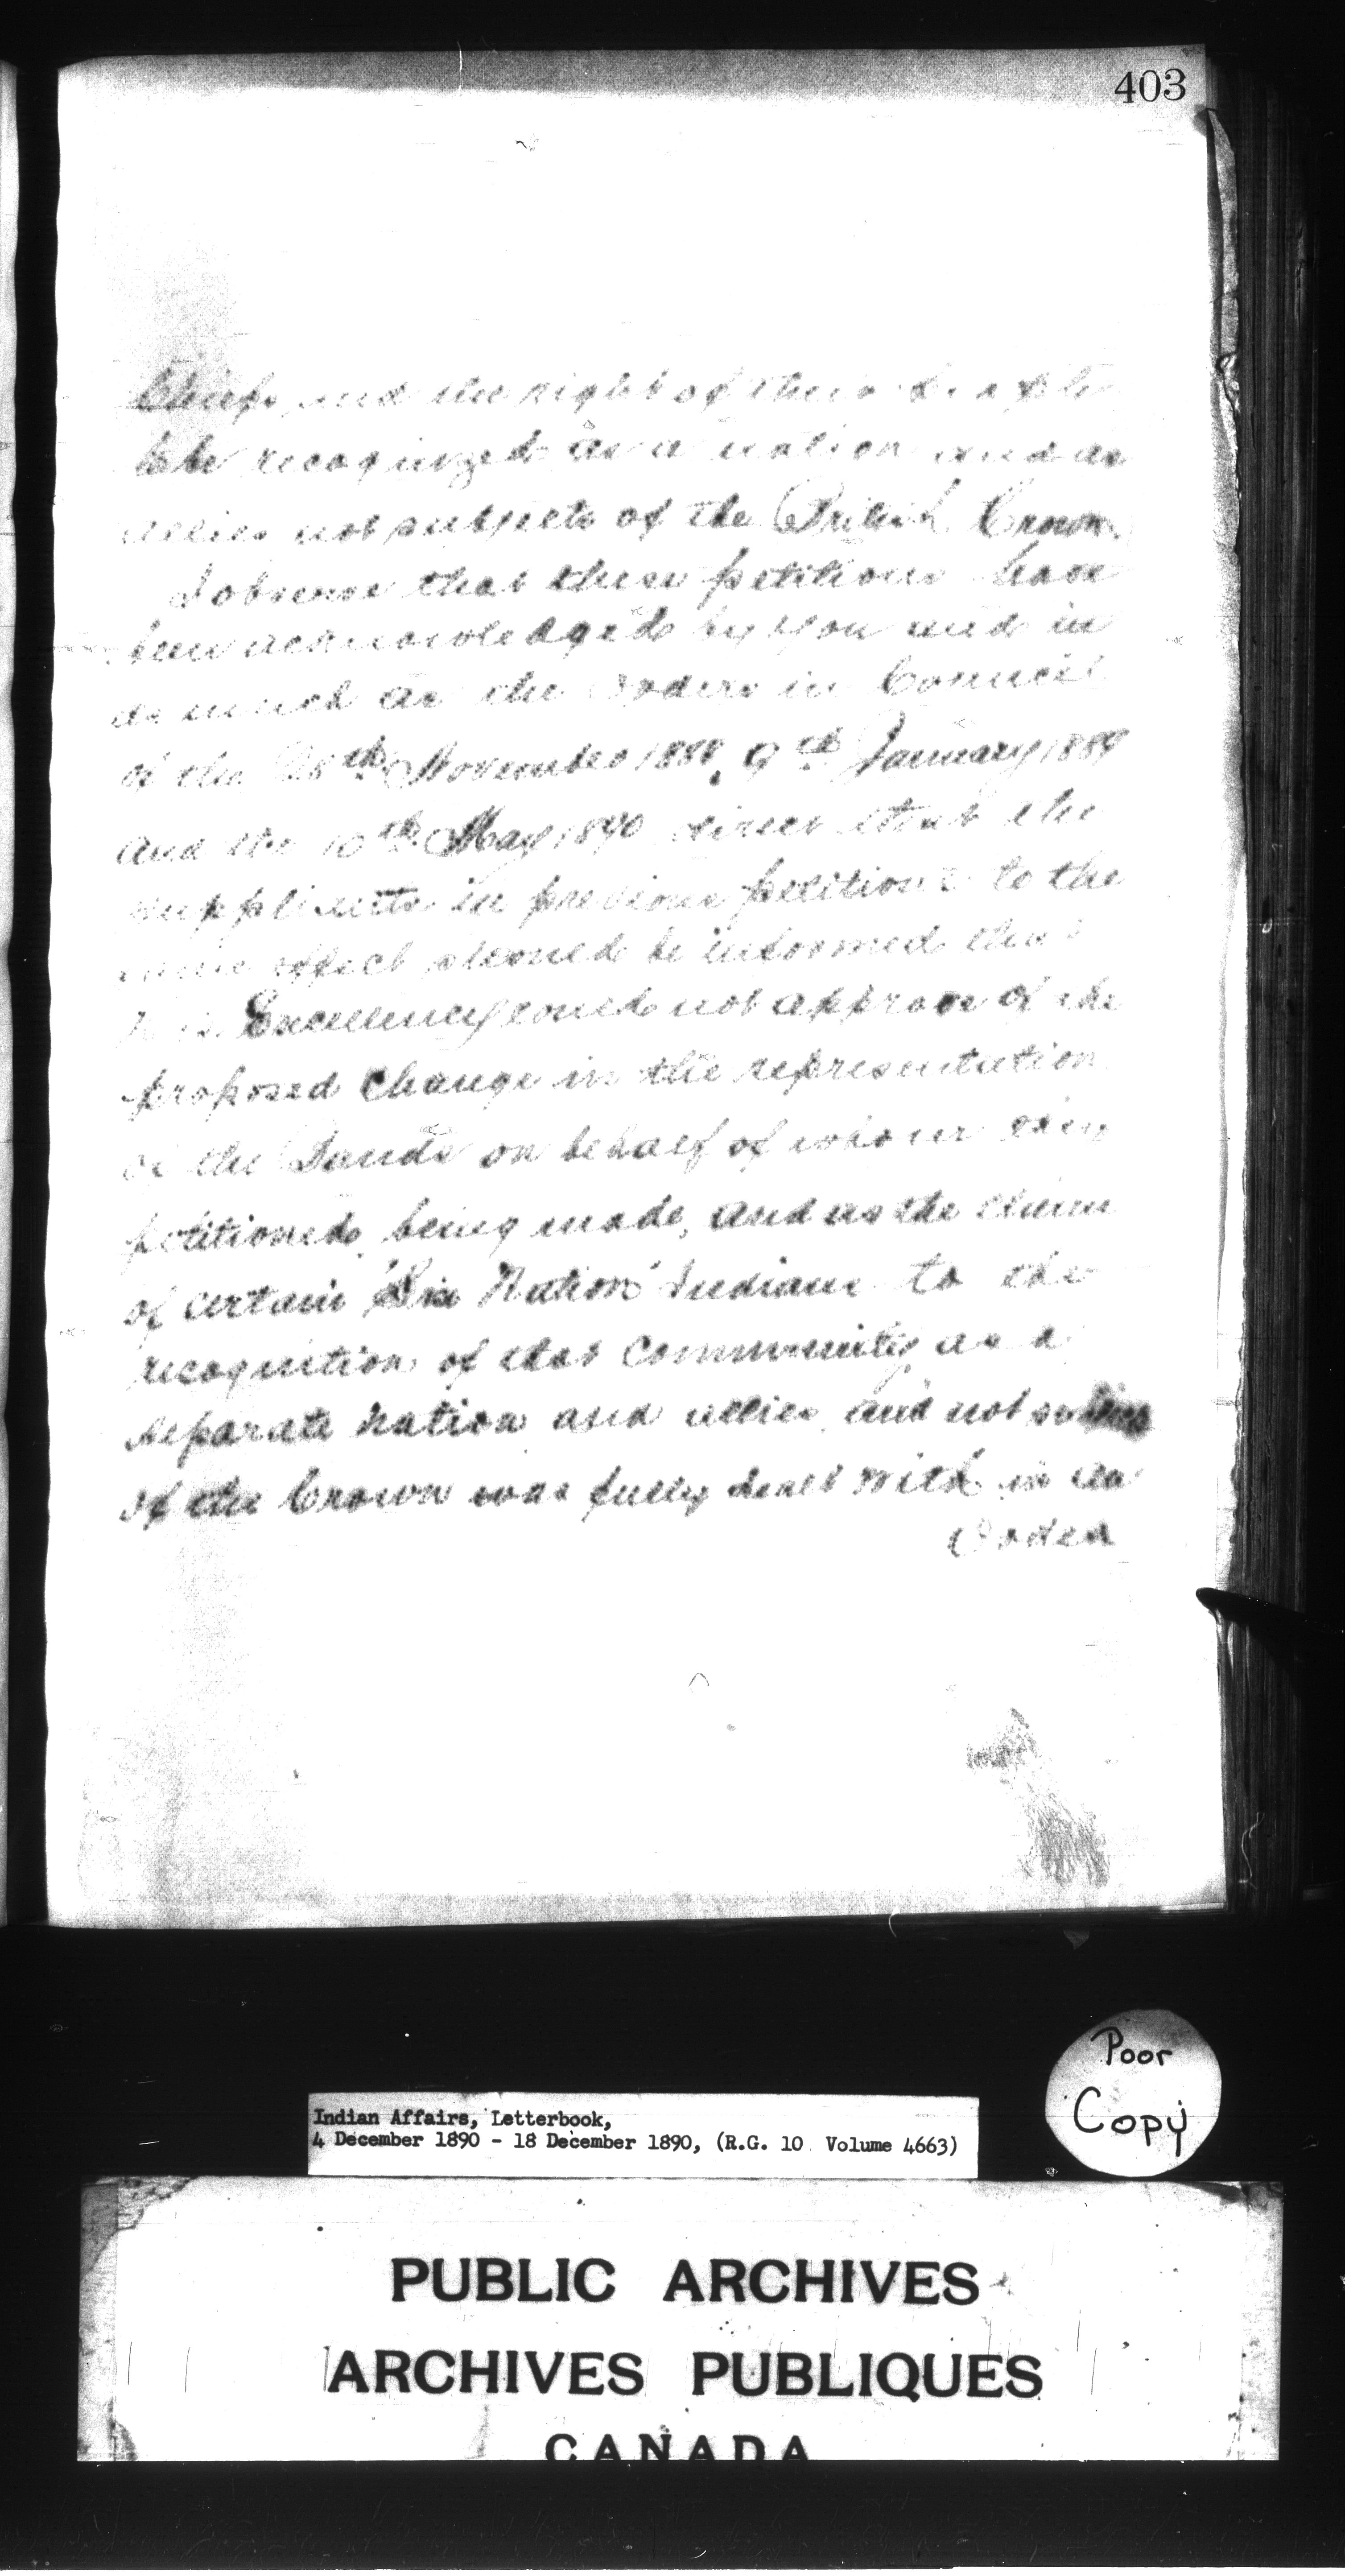 403
Chiefs and the right of their people to
be recognized as a nation and as
allies not subjects of the British Crown.
I observe that these petitions have
been acknowledged by you and in
as much as the Orders in Council
of the 28th November 1888, 9th January 1889
and the 10th May 1890 direct that the
suppliants in previous petitions to the
same effect should be informed that
His Excellency could not approve of the
proposed change in the representation
of the Bands on behalf of whom they
petitioned, being made, and as the claim
of certain "Six Nation" Indians to the
recognition of that Community as a
separate nation and allies and not
of the Crown was fully dealt with in an
Order
Poor
Copy
Indian Affairs, Letterbook,
4 December 1890 - 18 December 1890, (R.G. 10 Volume 4663)
PUBLIC ARCHIVES
ARCHIVES PUBLIQUES
CANADA